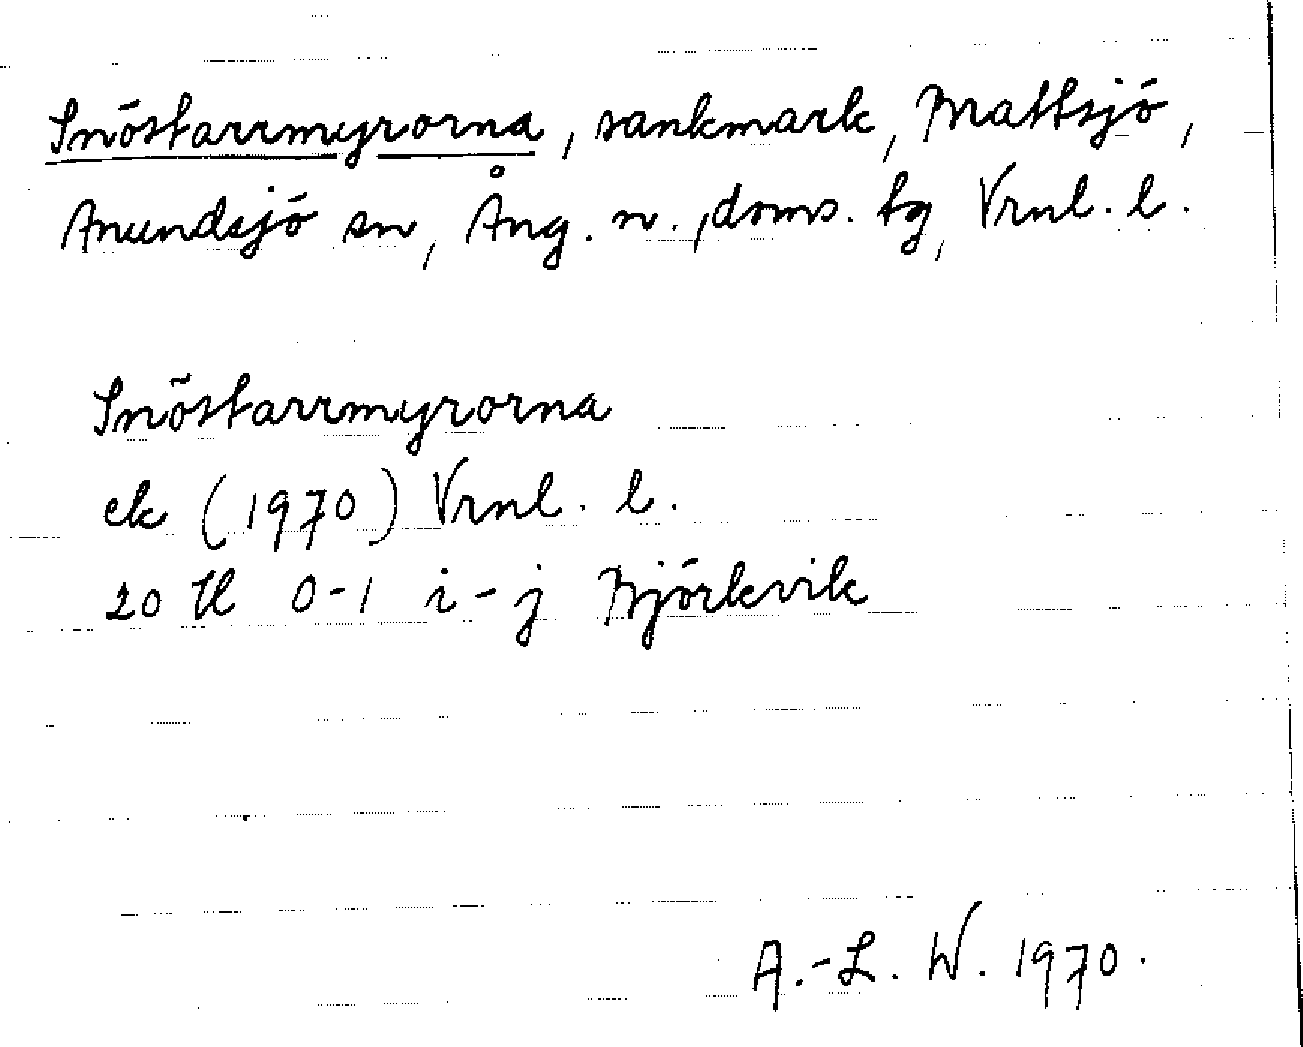 Snöstarrmyrorna, sankmark, Mattsjö,
Anundsjö sn, Ång. n., doms. tg, Vrnl. l.
Snöstarrmyrorna
ek (1970) Vrnl. l.
20 H 0-1 i-j Björkvik
A.-L. W. 1970.